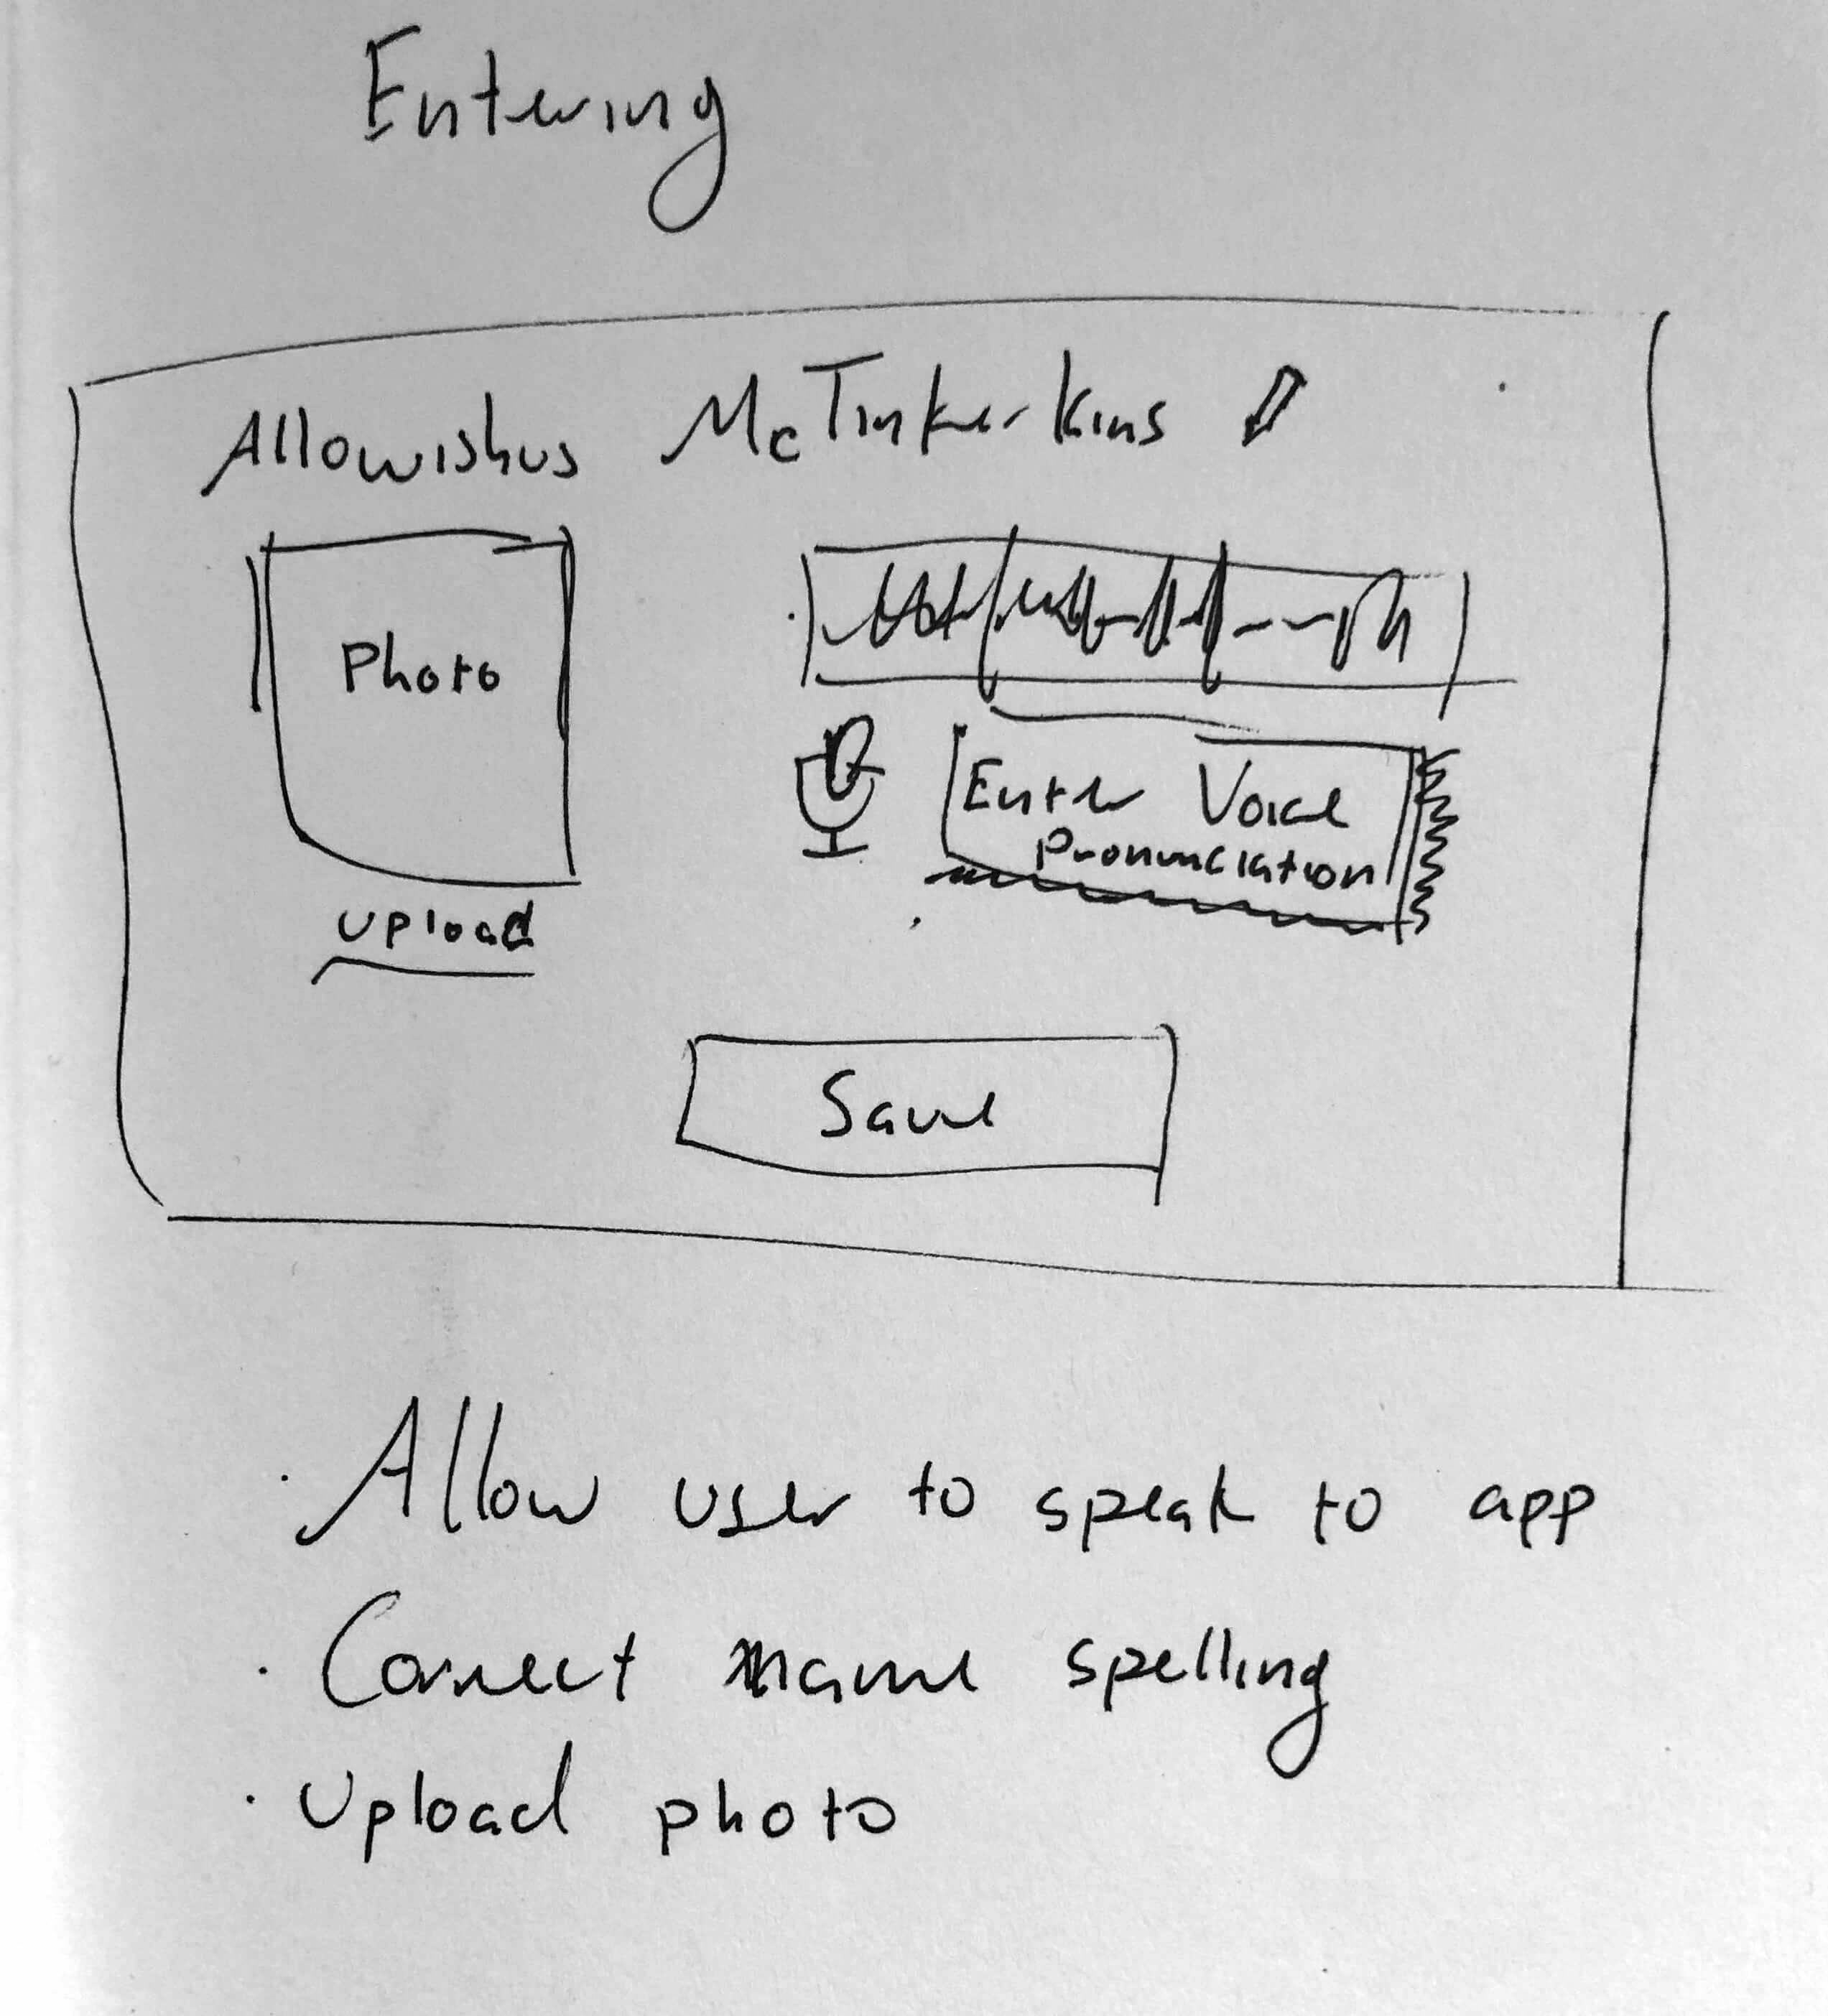 Entering
Allowishus McTinkerkins
Photo
Upload
Enter Voice
Pronunciation
Save
· Allow user to speak to app
· Correct name spelling
· Upload photo